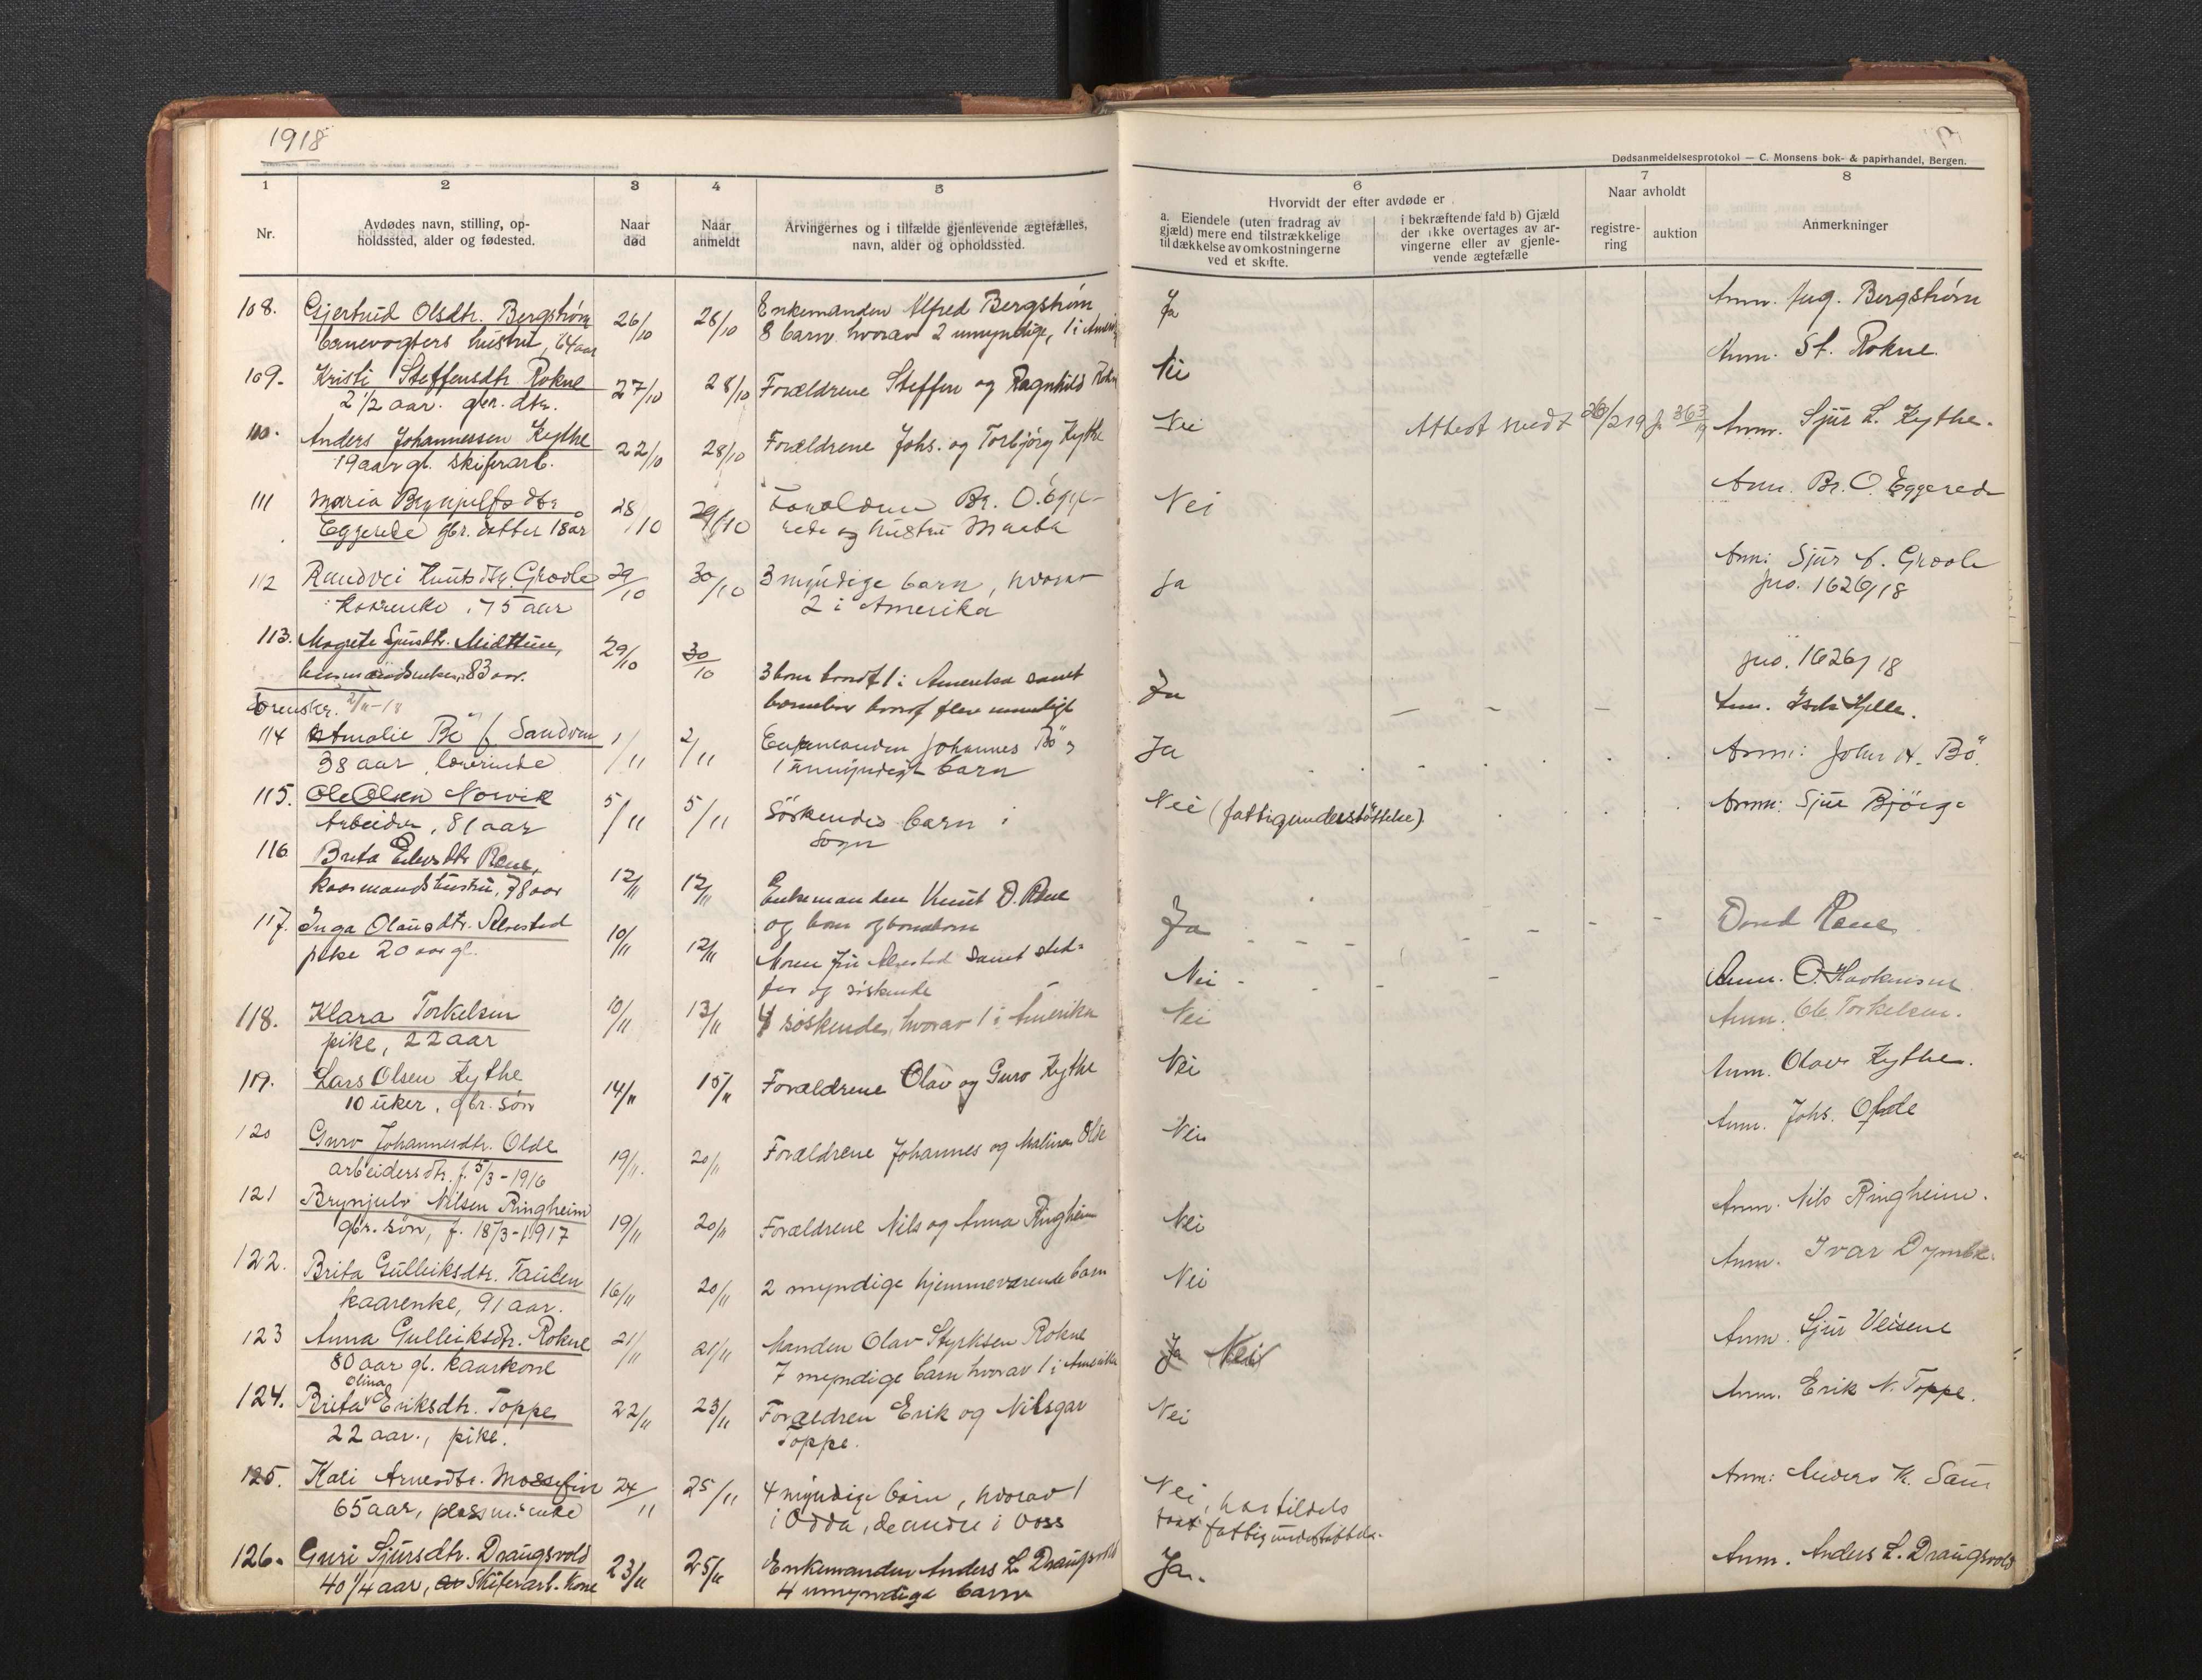 1918
Dødsanmeldelsesprotokol — C. Monsens bok- & papirhandel, Bergen.
1 2 3 4 5 6 7 8
Nr.
Avdødes navn, stilling, op-
holdssted, alder og fødested.
Naar
død
Naar
anmeldt
Arvingernes og i tilfælde gjenlevende ægtefælles,
navn, alder og opholdssted.
Hvorvidt der efter avdøde er
a. Eiendele (uten fradrag av
gjæld) mere end tilstrækkelige
til dækkelse av omkostningerne
ved et skifte.
i bekræftende fald b) Gjæld
der ikke overtages av ar-
vingerne eller av gjenle-
vende ægtefælle
Naar avholdt
registre-
ring
auktion
Anmerkninger
108. Gjertrud Olsdtr. Bergstrøm 26/10 28/10 Enkemanden Alfred Bergstrøm Ja Anm. Bergstrøm
banevogters hustru, 64 aar 8 barn hvorav 2 umyndige, 1 i
109. Kristi Steffensdtr. Rokne 27/10 28/10 Forældrene Steffen og Ragnhild Nei Anm. St. Rokne.
2 1/2 aar. gbr. dtr.
110. Anders Johannessen Kythe 22/10 28/10 Forældrene Johs. og Torbjørg Kythe Nei Attest 26/2 19 Anm. Sjur L. Kythe.
19 aar gl. skiferarb.
111 Maria Brynjulfsdtr 28/10 29/10 Forældrene Br. O. Egge- Nei Anm. Br. O. Eggerede
Eggerede gbr. datter 18 år rede og hustru
112 Randvei Knutsdtr. Groole 29/10 30/10 3 myndige barn, hvorav Ja Anm: Sjur Groole
kaarenke, 75 aar 2 i Amerika jno. 1626/18
113. Magrete Sjursdtr. Midttun, 29/10 30/10 jno. 1626/18
83 aar. 3 barn hvoraf 1 i Amerika samt Ja Anm. Hjelle.
Sorenskr. 2/11-18 barnebarn hvoraf flere umyndige
114 Amalie Bö f. Sandven 1/11 2/11 Enkemanden Johannes Bö og Ja Anm: Johs H. Bö.
38 aar, lærerinde 1 umyndigt barn
115. Ole Olsen Norvik 5/11 5/11 Söskendes barn i Nei (fattigunderstöttelse). Anm: Sjur Björge
Arbeider, 81 aar Sogn
116 Brita Rene,
kaarmandshustru, 78 aar 12/11 12/11 Enkemanden Knut D. Rene Ja David Rene
og barn og barnebarn
117. Inga Olausdtr. Alvestad 10/11 12/11 Moren Alvestad samt sted- Nei Anm. O. Haakensen
pike 20 aar gl. far og søskende
118. Klara Torkelsen 10/11 13/11 4 søskende, hvorav 1 i Amerika Nei Anm. Ole Torkelsen.
pike, 22 aar
119. Lars Olsen Kythe 14/11 15/11 Forældrene Olav og Guro Kythe Nei Anm. Olav Kythe.
10 uker, gbr. søn
120 Guro Johannesdtr. Olde 19/11. 20/11 Forældrene Johannes og Malina Olde Nei Anm. Johs. Olde
arbeidersdtr. f. 5/3-1916
121 Brynjulv Nilsen Ringheim 19/11 20/11 Forældrene Nils og Anna Ringheim Nei Anm. Nils Ringheim.
gbr. søn, f. 18/3-1917
122. Brita Gulleiksdtr. Tauten 16/11 20/11 2 myndige hjemmeværende barn Nei Anm. Ivar
kaarenke, 91 aar.
123 Anna Gulleiksdtr. Rokne 21/11 21/11 Manden Olav Styrksen Rokne Ja Nei Anm. Sjur Veisene
80 aar gl. kaarkone 7 myndige barn hvorav 1 i Amerika
124. Brita Olina Eriksdtr. Toppe 22/11 23/11 Forældren Erik og Nilsgar Nei Anm. Erik N. Toppe.
22 aar., pike. Toppe.
125. Kari Arnesdtr. Mossefin 24/11 25/11 4 myndige barn, hvorav 1 Nei, har tildels Anm: Anders K.
65 aar, plassm: enke i Odda, de andre i Voss fattigunderstöttelse.
126. Guri Sjursdtr. Draugsvold 23/11 25/11 Enkemanden Anders L. Draugsvold Ja. Anm. Anders L. Draugsvold
40 1/4 aar, Skiferarb. kone 4 umyndige barn